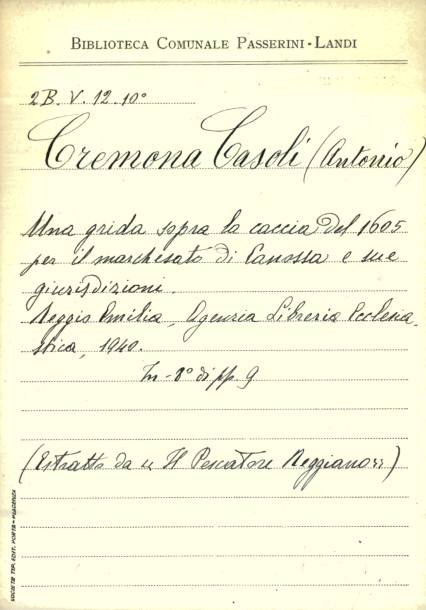 BIBLIOTECA COMUNALE PASSERINI - LANDI
2B. V. 12. 10°
Cremona Casoli (Antonio)
Una grida sopra la caccia del 1605
per il marchesato di Canossa e sue
giurisdizioni.
Reggio Emilia, Agenzia Libreria Ecclesia-
stica, 1940.
In-8° di pp. 9
(Estratto da « Il Pescatore Reggiano »)
SOCIETÀ TIP. EDIT. PORTA - PIACENZA